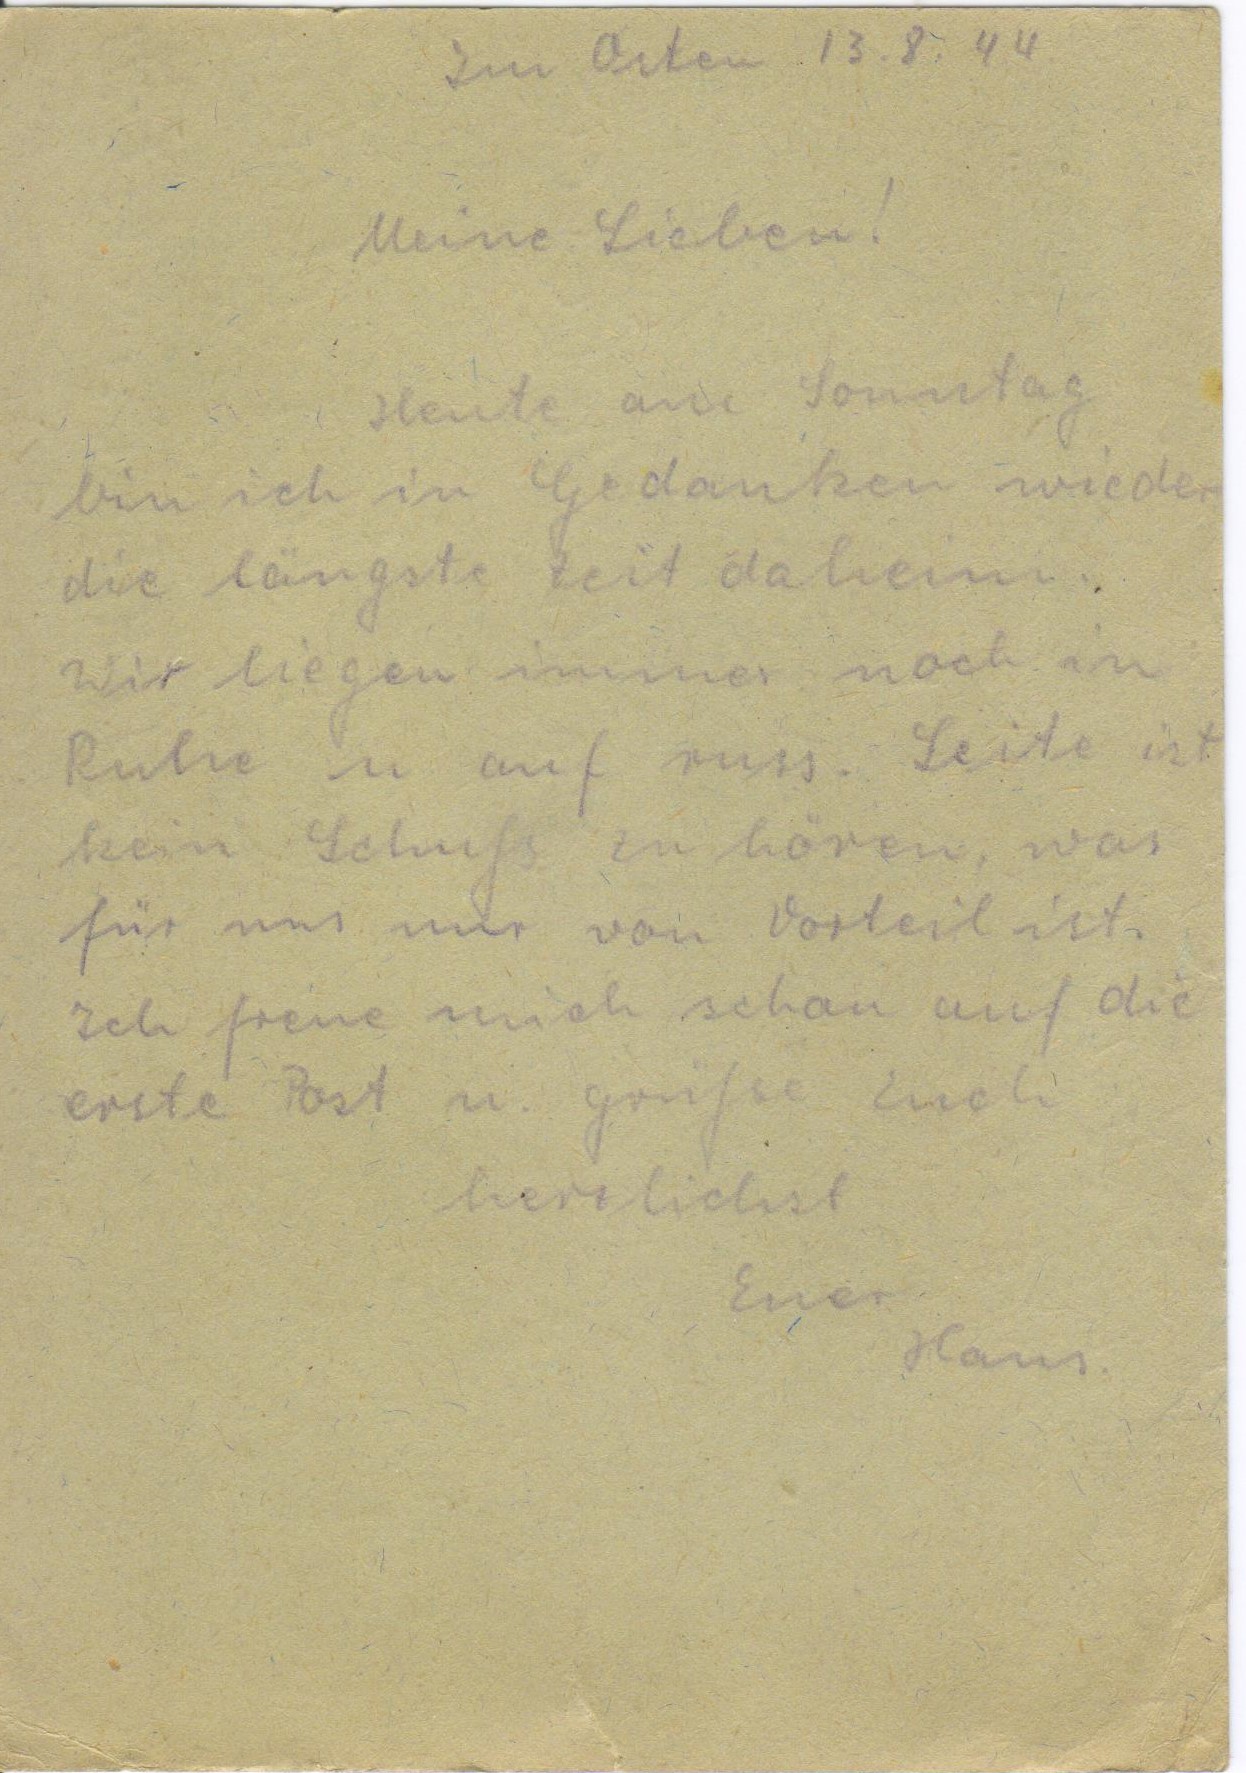 Im Osten 13.8.44
Meine Lieben!
Heute am Sonntag
bin ich in Gedanken wieder
die längste Zeit daheim.
Wir liegen immer noch in
Ruhe u auf russ. Seite ist
kein Schuß zu hören, was
für uns nur von Vorteil ist.
Ich freue mich schon auf die
erste Post u. grüße Euch
herzlichst
Euer
Hans.